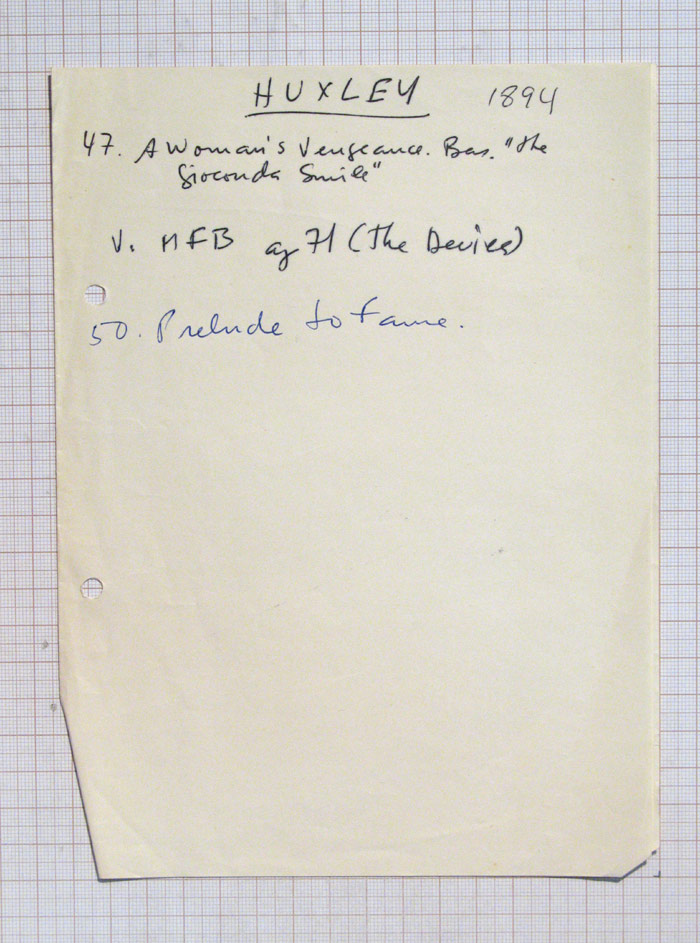 HUXLEY 1894
47. A Woman's Vengeance. Bas. "the
Gioconda Smile"
V. MFB ag 71 (The Deviles)
50. Prelude to Fame.